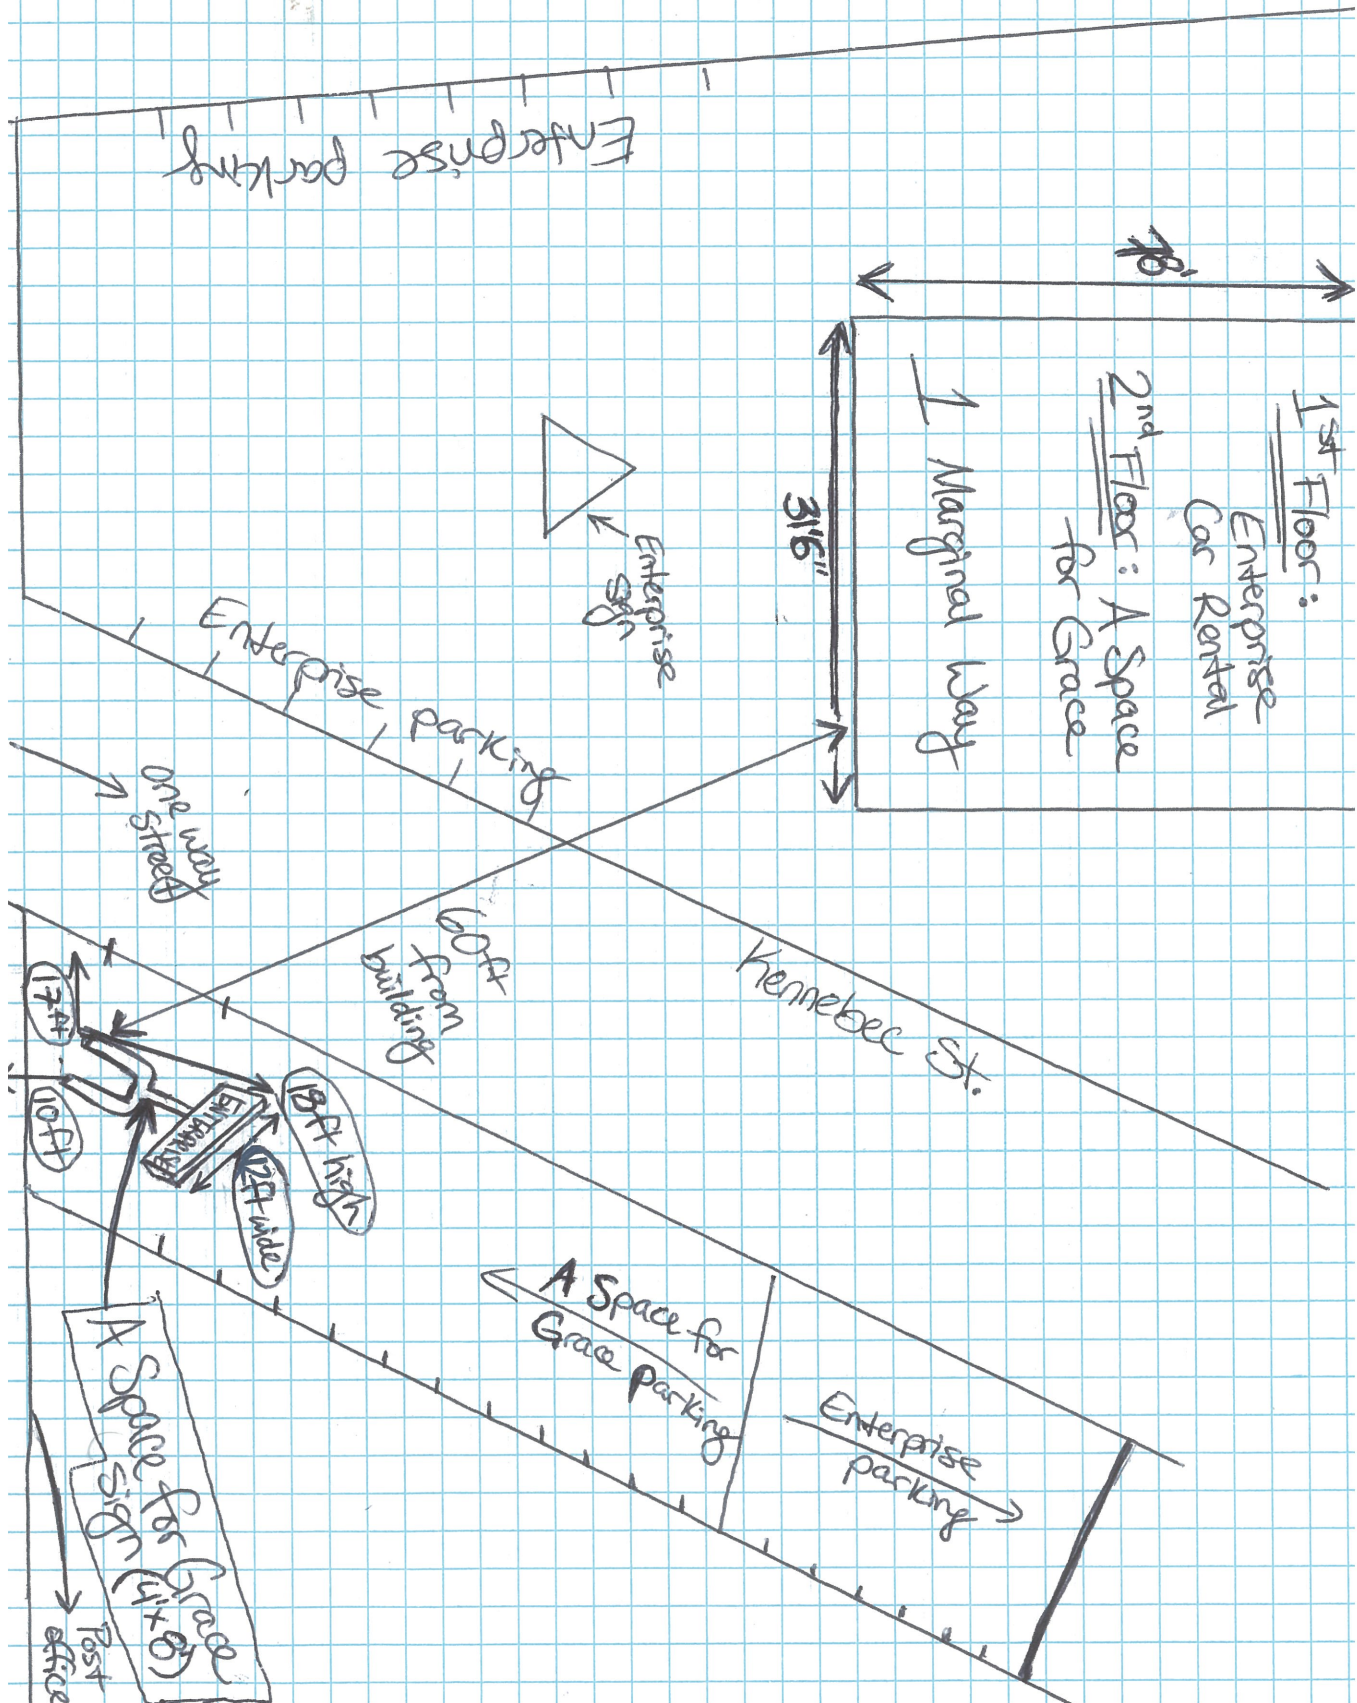 Enterprise parking
78'
1st Floor:
Enterprise
Car Rental
2nd Floor: A Space
for Grace
1 Marginal Way
31'6"
Enterprise
sign
Enterprise parking
one way
street
60ft
from
building
Kennebec St.
17ft
10ft
18ft high
ENTERPRISE
12ft wide
A Space for
Grace parking
Enterprise
parking
A Space for Grace
Sign (4'x8')
Post
office